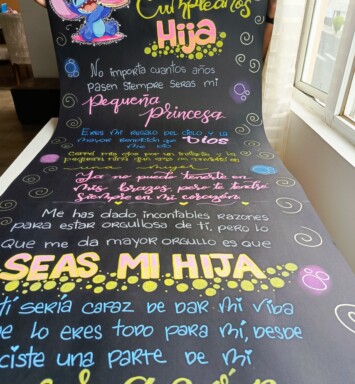 Cumpleaños
Hija
No importa cuantos años
pasen siempre seras mi
pequeña
princesa
Eres mi regalo del cielo y la
mayor bendición que
Dios
Ya no puedo tenerte en
mis brazos, pero te tendre
siempre en mi corazón
Me has dado incontables razones
para estar orgullosa de ti, pero lo
que me da mayor orgullo es que
SEAS MI HIJA
ti sería capaz de dar mi vida
e lo eres todo para mi, desde
ciste una parte de mi